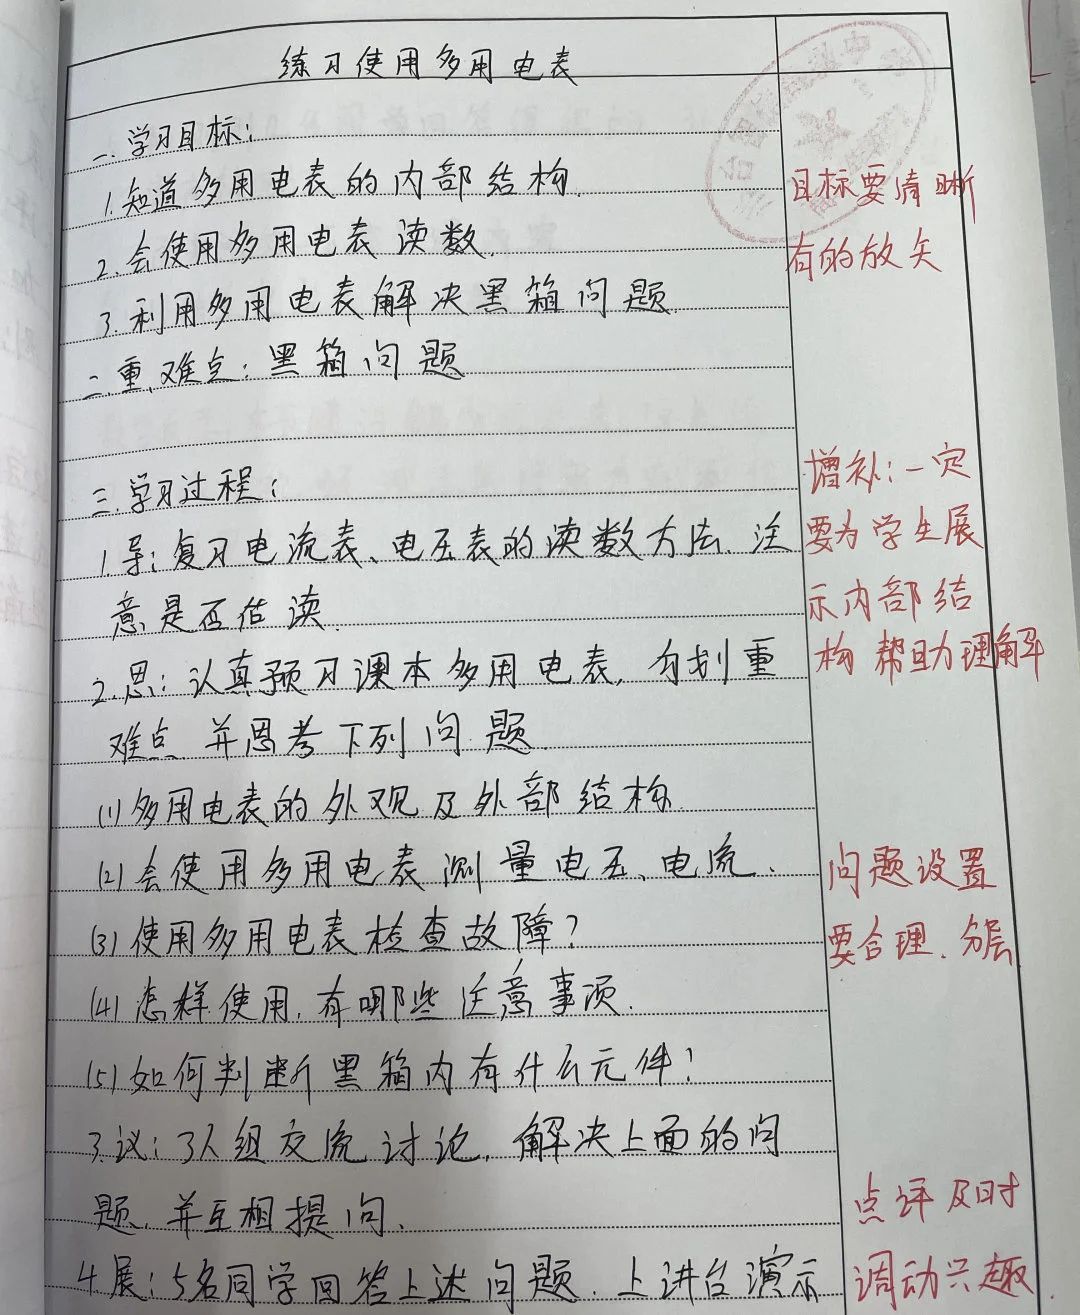 练习使用多用电表
一.学习目标:
1.知道多用电表的内部结构.
2.会使用多用电表读数.
3.利用多用电表解决黑箱问题.
二.重、难点:黑箱问题
三.学习过程:
1.导:复习电流表、电压表的读数方法、注
意是否估读.
2.思:认真预习课本多用电表,勾划重
难点.并思考下列问题.
(1)多用电表的外观及外部结构.
(2)会使用多用电表测量电压、电流.
(3)使用多用电表检查故障?
(4)怎样使用,有哪些注意事项.
(5)如何判断黑箱内有什么元件?
3.议:3人组交流讨论,解决上面的问
题.并互相提问.
4.展:5名同学回答上述问题.上讲台演示
目标要清晰
有的放矢
增补:一定
要为学生展
示内部结
构帮助理解
问题设置
要合理.分层
点评及时
调动兴趣.